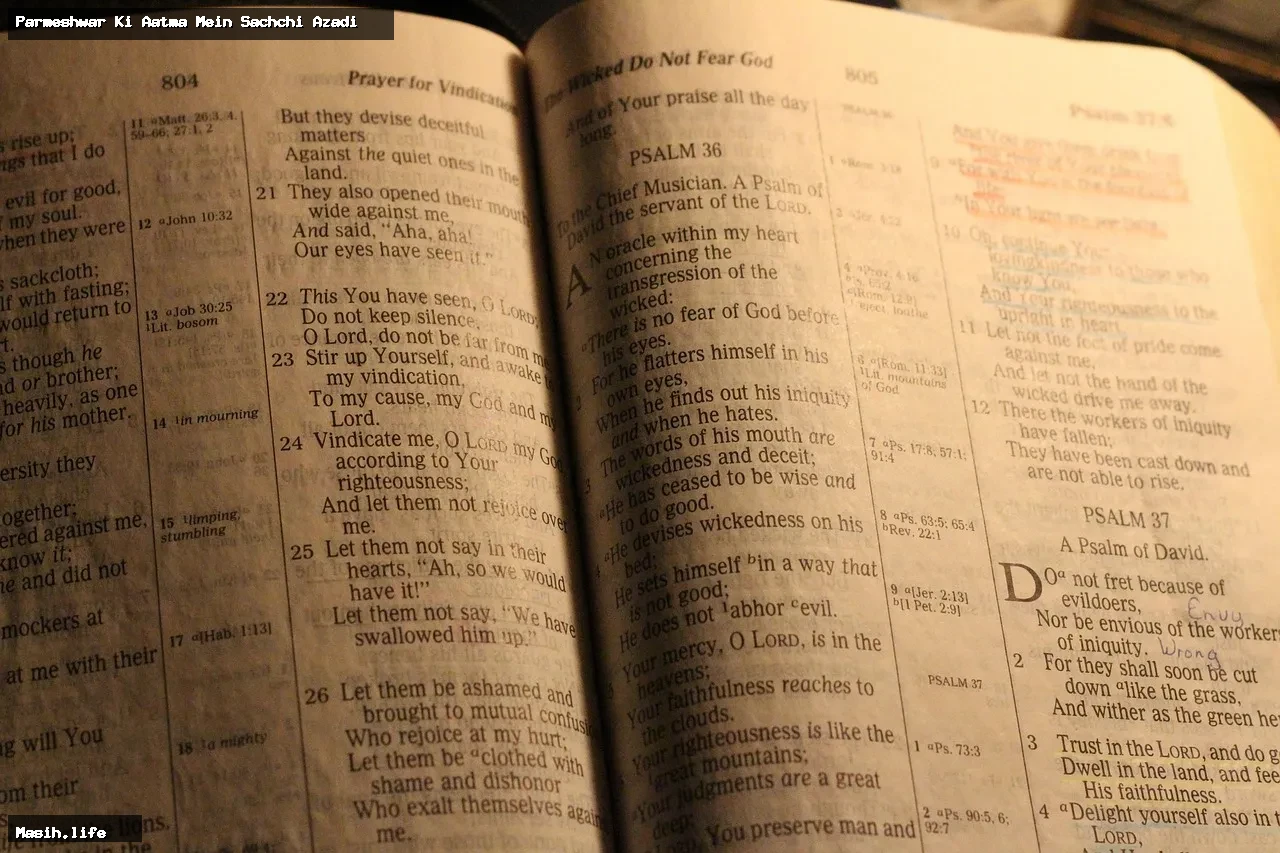 Parmeshwar Ki Aatma Mein Sachchi Azadi
804
Prayer for Vindication
rise up;
ngs that I do
evil for good,
my soul.
when they were
sackcloth;
lf with fasting;
would return to
though he
nd or brother;
heavily, as one
for his mother.
ersity they
ogether;
ered against me,
know it;
ne and did not
mockers at
at me with their
ng will You
om their
lions.
11 aMatt. 26:3, 4,
59–66; 27:1, 2
12 aJohn 10:32
13 aJob 30:25
1Lit. bosom
14 1in mourning
15 1limping,
stumbling
17 a[Hab. 1:13]
18 1a mighty
But they devise deceitful
matters
Against the quiet ones in the
land.
21 They also opened their mouth
wide against me,
And said, “Aha, aha!
Our eyes have seen it.”
22 This You have seen, O LORD;
Do not keep silence;
O Lord, do not be far from me
23 Stir up Yourself, and awake to
my vindication,
To my cause, my God and my
Lord.
24 Vindicate me, O LORD my God
according to Your
righteousness;
And let them not rejoice over
me.
25 Let them not say in their
hearts, “Ah, so we would
have it!”
Let them not say, “We have
swallowed him up.”
26 Let them be ashamed and
brought to mutual confusion
Who rejoice at my hurt;
Let them be aclothed with
shame and dishonor
Who exalt themselves against
me.
The Wicked Do Not Fear God
805
And of Your praise all the day
long.
PSALM 36
To the Chief Musician. A Psalm of
David the servant of the LORD.
AN oracle within my heart
concerning the
transgression of the
wicked:
aThere is no fear of God before
his eyes.
2 For he flatters himself in his
own eyes,
When he finds out his iniquity
and when he hates.
3 The words of his mouth are
wickedness and deceit;
aHe has ceased to be wise and
to do good.
4 aHe devises wickedness on his
bed;
He sets himself bin a way that
is not good;
He does not 1abhor cevil.
5 Your mercy, O LORD, is in the
heavens;
Your faithfulness reaches to
the clouds.
Your righteousness is like the
1great mountains;
aYour judgments are a great
deep;
You preserve man and
6 a[Rom. 11:33]
1Lit. mountains
of God
7 aPs. 17:8; 57:1;
91:4
8 aPs. 63:5; 65:4
bRev. 22:1
9 a[Jer. 2:13]
b[1 Pet. 2:9]
PSALM 37
1 aPs. 73:3
2 aPs. 90:5, 6;
92:7
10 Oh, continue Your
lovingkindness to those who
know You,
And Your righteousness to the
upright in heart.
11 Let not the foot of pride come
against me,
And let not the hand of the
wicked drive me away.
12 There the workers of iniquity
have fallen;
They have been cast down and
are not able to rise.
PSALM 37
A Psalm of David.
DOa not fret because of
evildoers,
Envy
Nor be envious of the workers
of iniquity. Wrong
2 For they shall soon be cut
down alike the grass,
And wither as the green he
3 Trust in the LORD, and do g
Dwell in the land, and fee
His faithfulness.
4 aDelight yourself also in t
LORD,
Masih.life